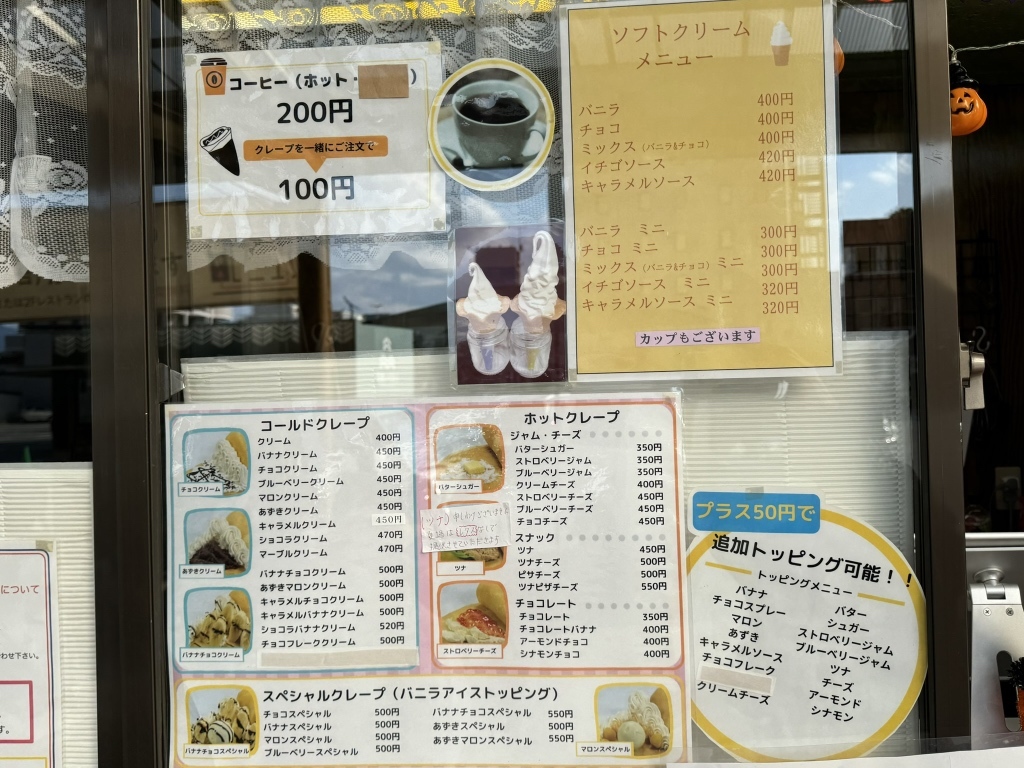 コーヒー（ホット・　　）
200円
クレープを一緒にご注文で
100円
ソフトクリーム
メニュー
バニラ 400円
チョコ 400円
ミックス（バニラ&チョコ） 400円
イチゴソース 420円
キャラメルソース 420円
バニラ　ミニ 300円
チョコ ミニ 300円
ミックス（バニラ&チョコ）ミニ 300円
イチゴソース　ミニ 320円
キャラメルソース ミニ 320円
カップもございます
コールドクレープ
クリーム 400円
バナナクリーム 450円
チョコクリーム 450円
ブルーベリークリーム 450円
マロンクリーム 450円
あずきクリーム 450円
キャラメルクリーム 450円
ショコラクリーム 470円
マーブルクリーム 470円
バナナチョコクリーム 500円
あずきマロンクリーム 500円
キャラメルチョコクリーム 500円
キャラメルバナナクリーム 500円
ショコラバナナクリーム 520円
チョコフレーククリーム 500円
チョコクリーム
あずきクリーム
バナナチョコクリーム
ホットクレープ
ジャム・チーズ
バターシュガー 350円
ストロベリージャム 350円
ブルーベリージャム 350円
クリームチーズ 400円
ストロベリーチーズ 450円
ブルーベリーチーズ 450円
チョコチーズ 450円
スナック
ツナ 450円
ツナチーズ 500円
ピザチーズ 500円
ツナピザチーズ 550円
チョコレート
チョコレート 350円
チョコレートバナナ 400円
アーモンドチョコ 400円
シナモンチョコ 400円
バターシュガー
ツナ
ストロベリーチーズ
スペシャルクレープ（バニラアイストッピング）
チョコスペシャル 500円
バナナスペシャル 500円
マロンスペシャル 500円
ブルーベリースペシャル 500円
バナナチョコスペシャル 550円
あずきスペシャル 500円
あずきマロンスペシャル 550円
バナナチョコスペシャル
マロンスペシャル
プラス50円で
追加トッピング可能！！
トッピングメニュー
バナナ
チョコスプレー
マロン
あずき
キャラメルソース
チョコフレーク
クリームチーズ
バター
シュガー
ストロベリージャム
ブルーベリージャム
ツナ
チーズ
アーモンド
シナモン
について
わせ下さい。
す。